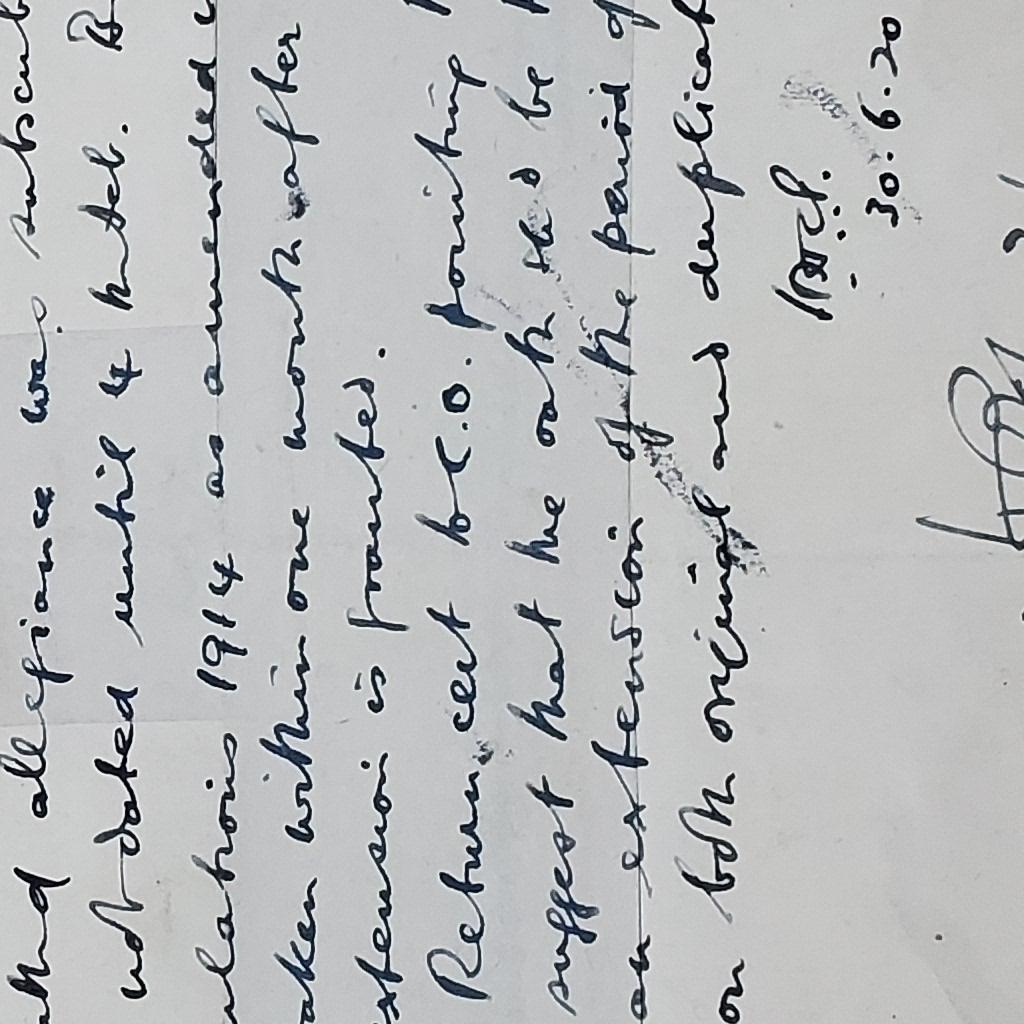 allegiance was
not dated until 4 Feb.
1914 as amended
within one month after
extension is granted.
Return cert to C.O. pointing
suggest that the oath shd be
an extension of the period of
on both original and duplicate
30.6.20